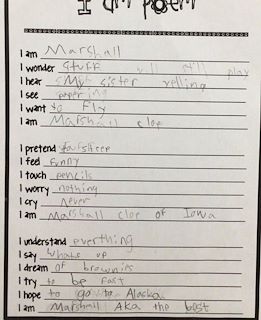 I am poem
I am Marshall
I wonder stuff will still play
I hear My sister yelling
I see
I want to Fly
I am Marshall cloe
I pretend
I feel Funny
I touch pencils
I worry nothing
I cry never
I am Marshall cloe of Iowa
I understand everthing
I say whats up
I dream of brownies
I try to be Fast
I hope to go to Alaska
I am Marshall AKA the best